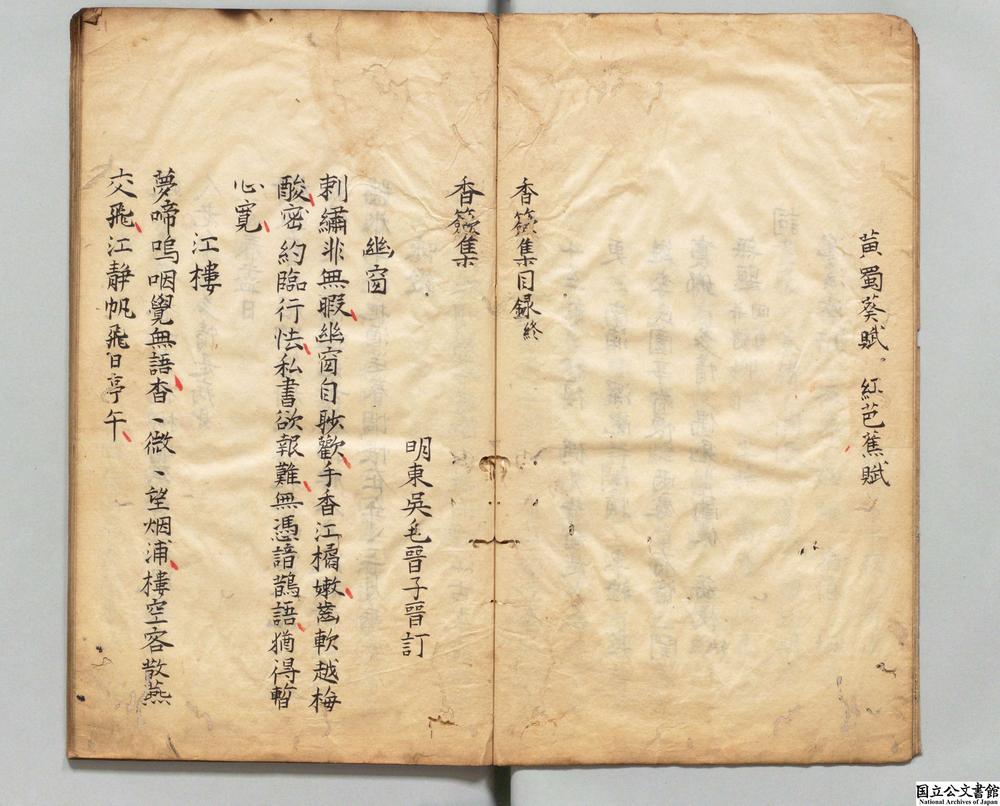 黄蜀葵賦。紅芭蕉賦
香籢集目録終
香籢集
明東吳毛晉子晉訂
幽窗
刺繡非無暇幽窗自眇歡手香江橘嫩齒軟越梅
酸密約臨行怯私書欲報難無憑諳鵲語猶得暫
心寛
江樓
夢啼嗚咽覺無語杳〻微〻望烟浦樓空客散燕
交飛江静帆飛日亭午
国立公文書館
National Archives of Japan